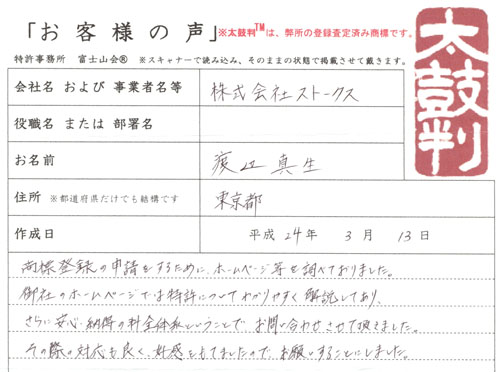 「お客様の声」 ※太鼓判™は、弊所の登録査定済み商標です。
特許事務所 富士山会® ※スキャナーで読み込み、そのままの状態で掲載させて戴きます。
太鼓判
会社名 および 事業者名等 株式会社ストークス
役職名 または 部署名
お名前 渡辺 真生
住所 ※都道府県だけでも結構です 東京都
作成日 平成 24年 3月 13日
商標登録の申請をするために、ホームページ等を調べておりました。
御社のホームページでは特許についてわかりやすく解説してあり、
さらに安心・納得の料金体系ということで お問い合わせさせて頂きました。
その際の対応も良く、好感をもてましたので、お願いすることにしました。